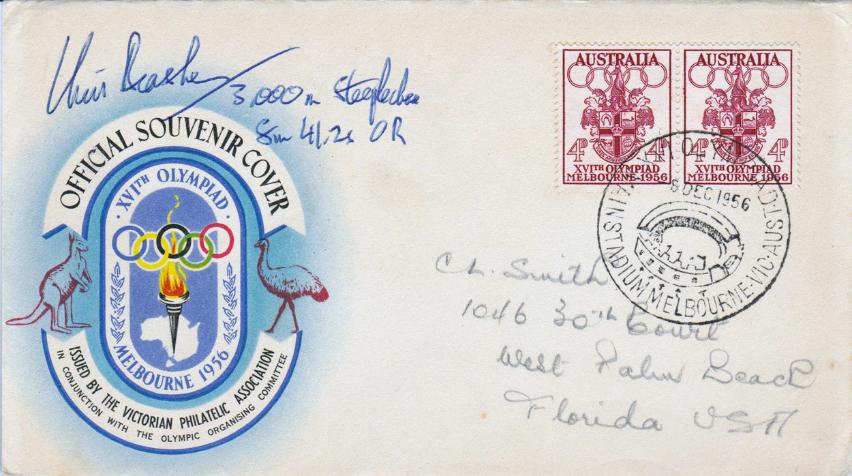 Chris Brasher
3,000m Steeplechase
8m 41.2s OR
OFFICIAL SOUVENIR COVER
XVITH OLYMPIAD
MELBOURNE 1956
ISSUED BY THE VICTORIAN PHILATELIC ASSOCIATION
IN CONJUNCTION WITH THE OLYMPIC ORGANISING COMMITTEE
AUSTRALIA
4D 4D
XVITH OLYMPIAD
MELBOURNE 1956
AUSTRALIA
4D 4D
XVITH OLYMPIAD
MELBOURNE 1956
XVI OLYMPIAD
DEC 1956
MAIN STADIUM MELBOURNE-VIC-AUST
C L. Smith
1046 30th Court
West Palm Beach
Florida USA